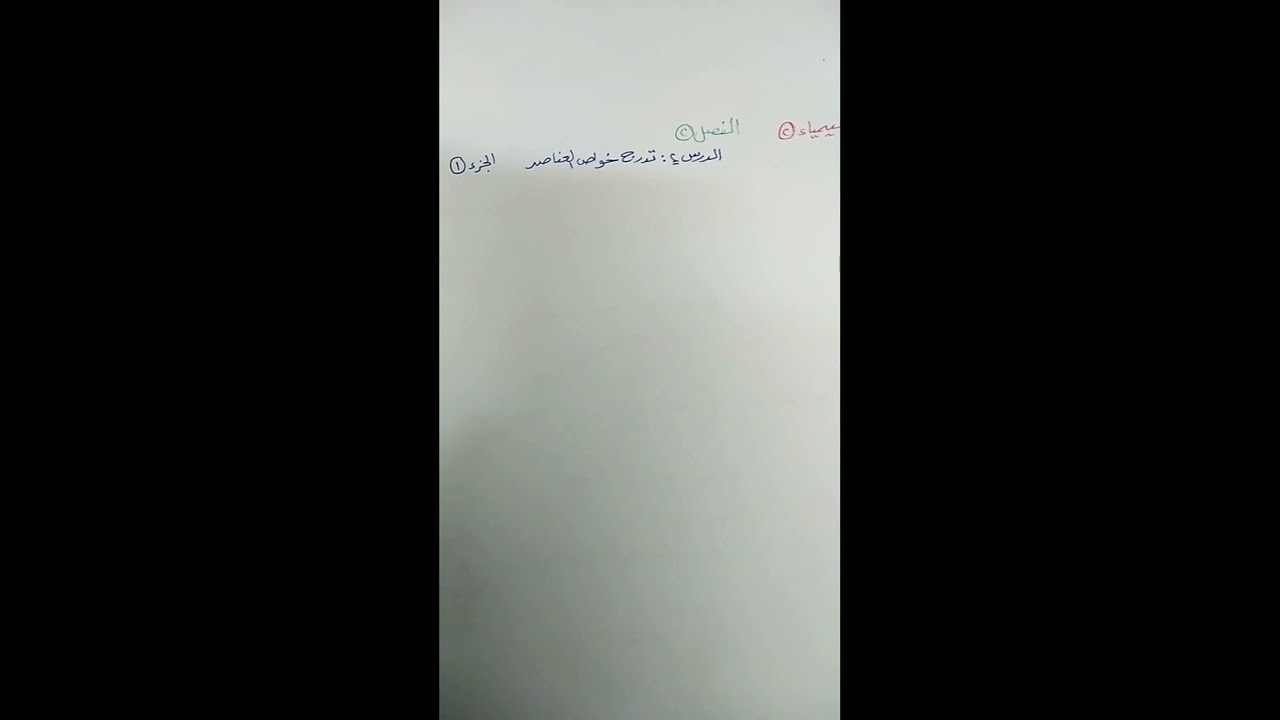 يمياء ٢ الفصل ٢
الدرس ٤: تدرج خواص العناصر الجزء ١